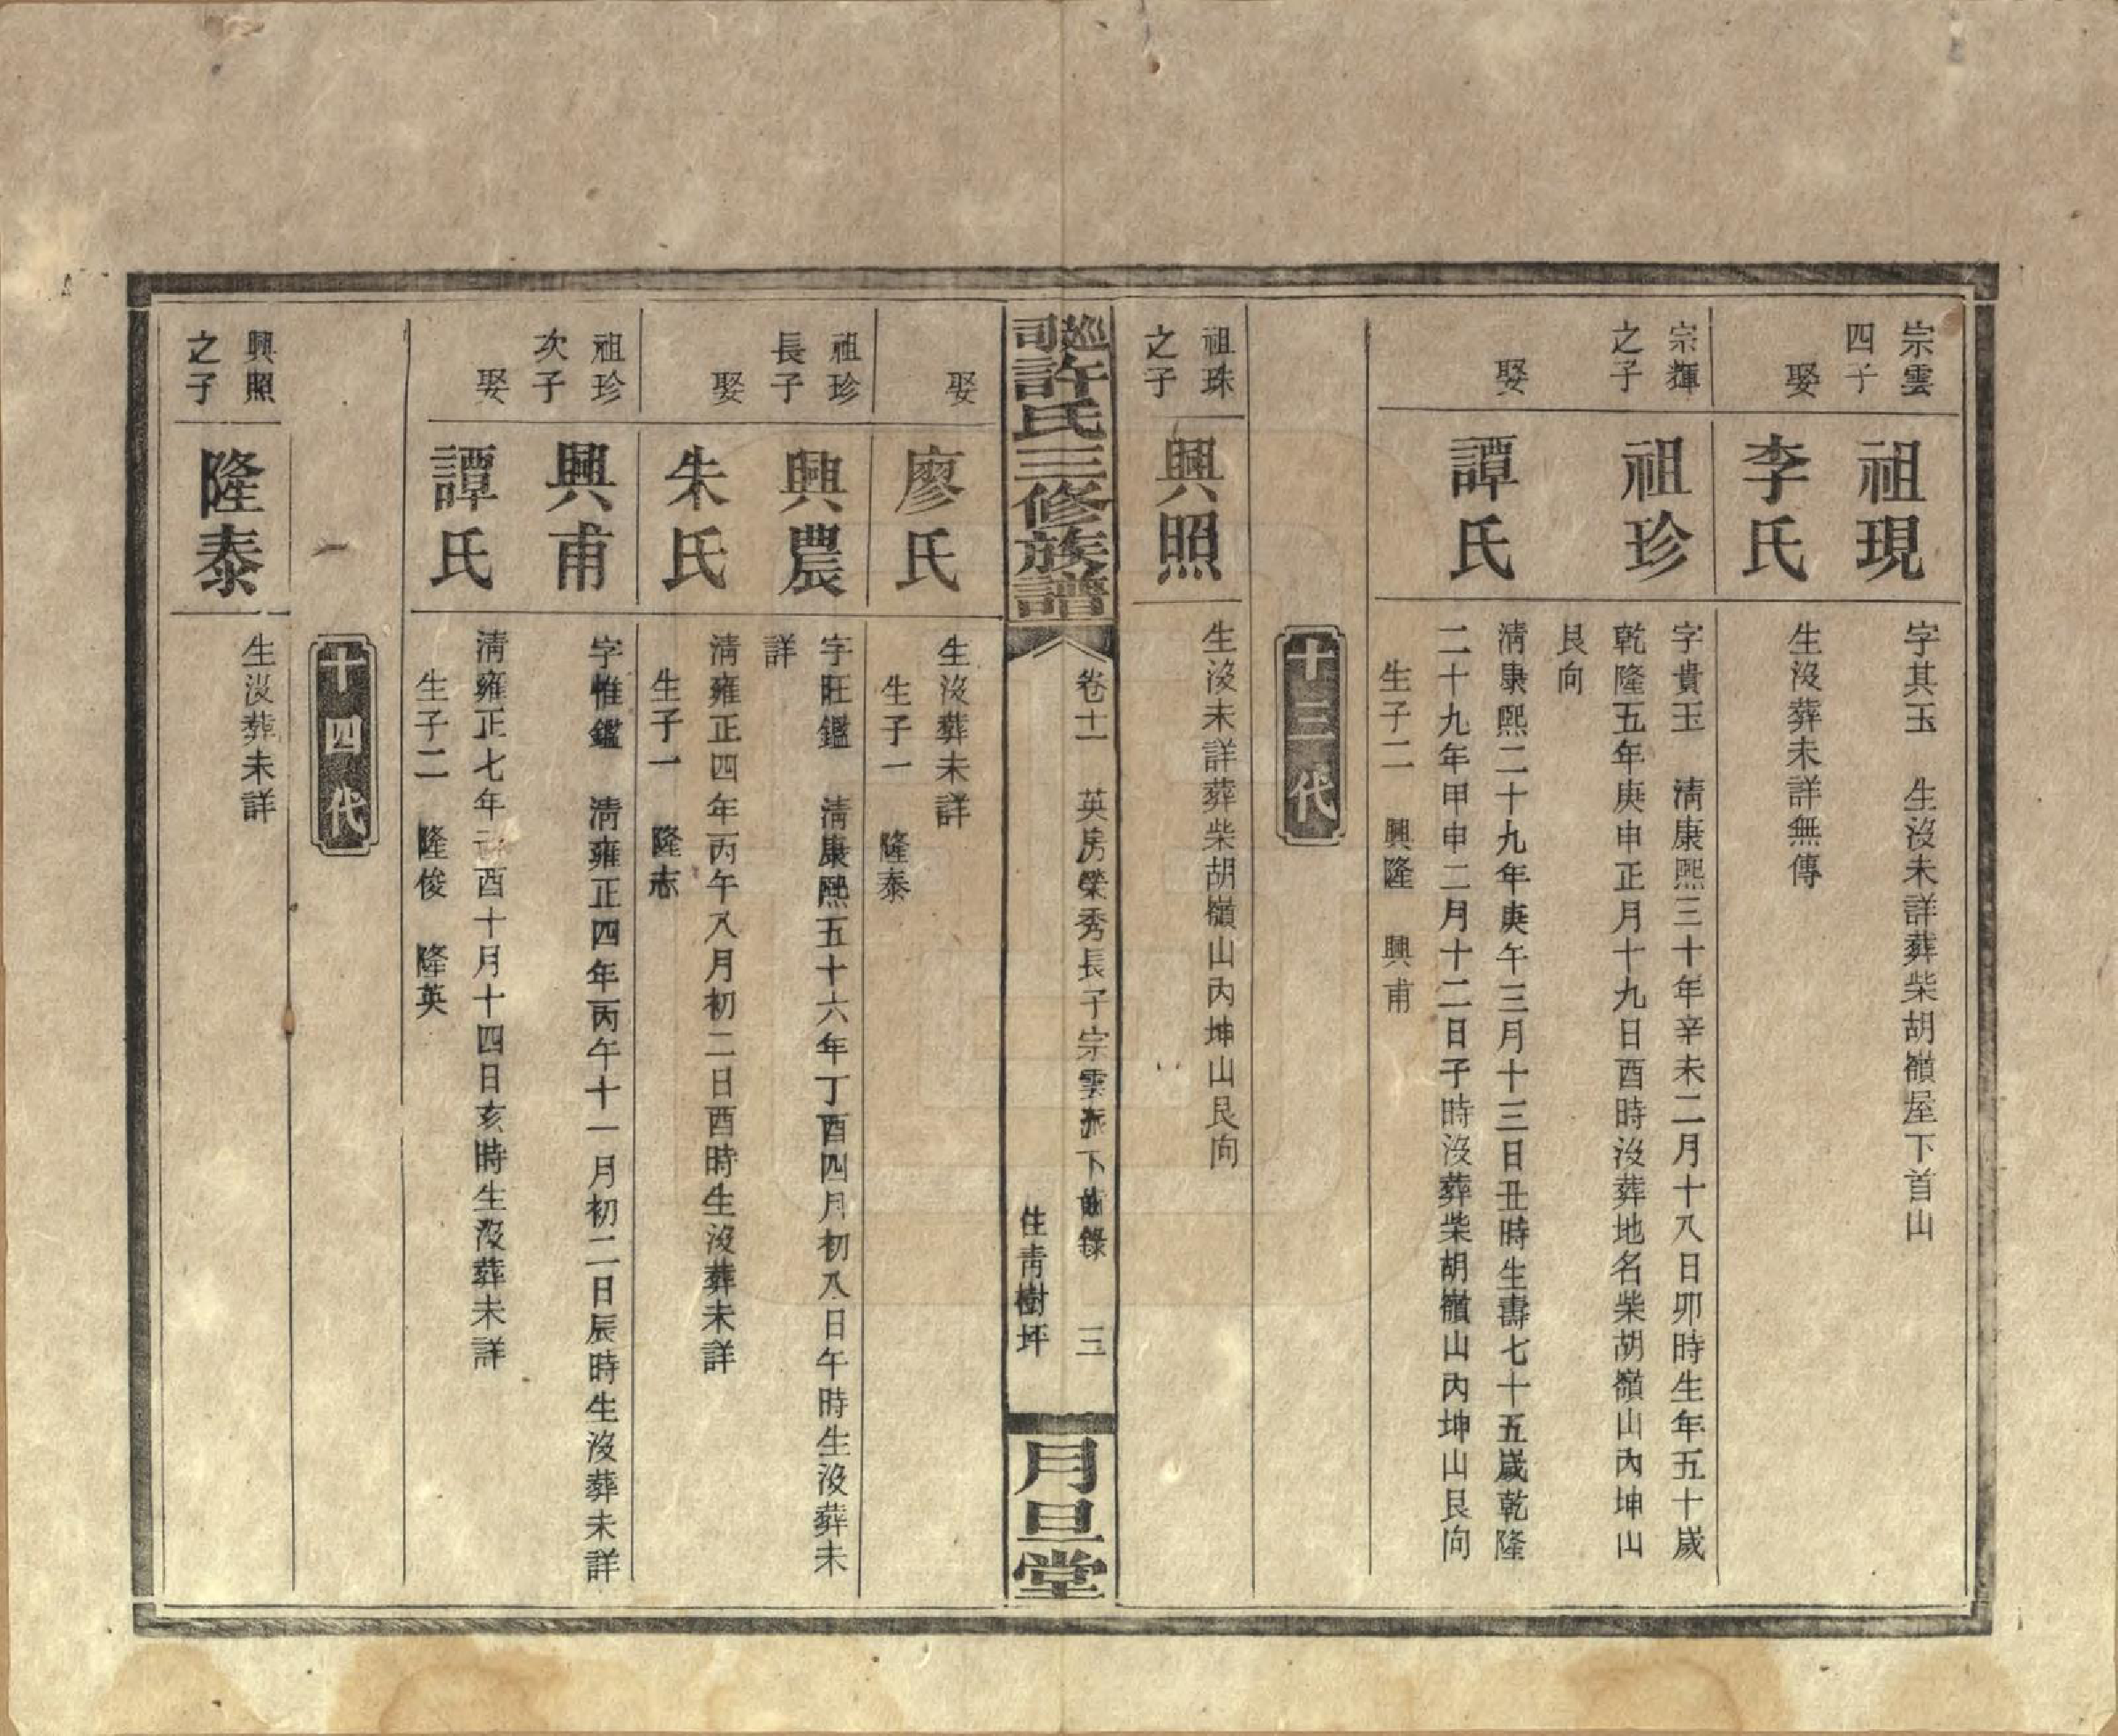 宗雲
四子
祖現
字其玉　生沒未詳葬柴胡嶺屋下首山
娶
李氏
生沒葬未詳無傳
宗輝
之子
祖珍
字貴玉　清康熙三十年辛未二月十八日卯時生年五十歲
乾隆五年庚申正月十九日酉時沒葬地名柴胡嶺山內坤山
艮向
娶
譚氏
清康熙二十九年庚午三月十三日丑時生壽七十五歲乾隆
二十九年甲申二月十二日子時沒葬柴胡嶺山內坤山艮向
生子二　興隆　興甫
十三代
祖珠
之子
興照
生沒未詳葬柴胡嶺山內坤山艮向
巡司許氏三修族譜
卷十一　英房榮秀長子宗雲派下齒錄　三
住青樹坪
月旦堂
娶
廖氏
生沒葬未詳
生子一　隆泰
祖珍
長子
興農
字旺鑑　清康熙五十六年丁酉四月初八日午時生沒葬未
詳
娶
朱氏
清雍正四年丙午八月初二日酉時生沒葬未詳
生子一　隆志
祖珍
次子
興甫
字惟鑑　清雍正四年丙午十一月初二日辰時生沒葬未詳
娶
譚氏
清雍正七年己酉十月十四日亥時生沒葬未詳
生子二　隆俊　隆英
十四代
興照
之子
隆泰
生沒葬未詳